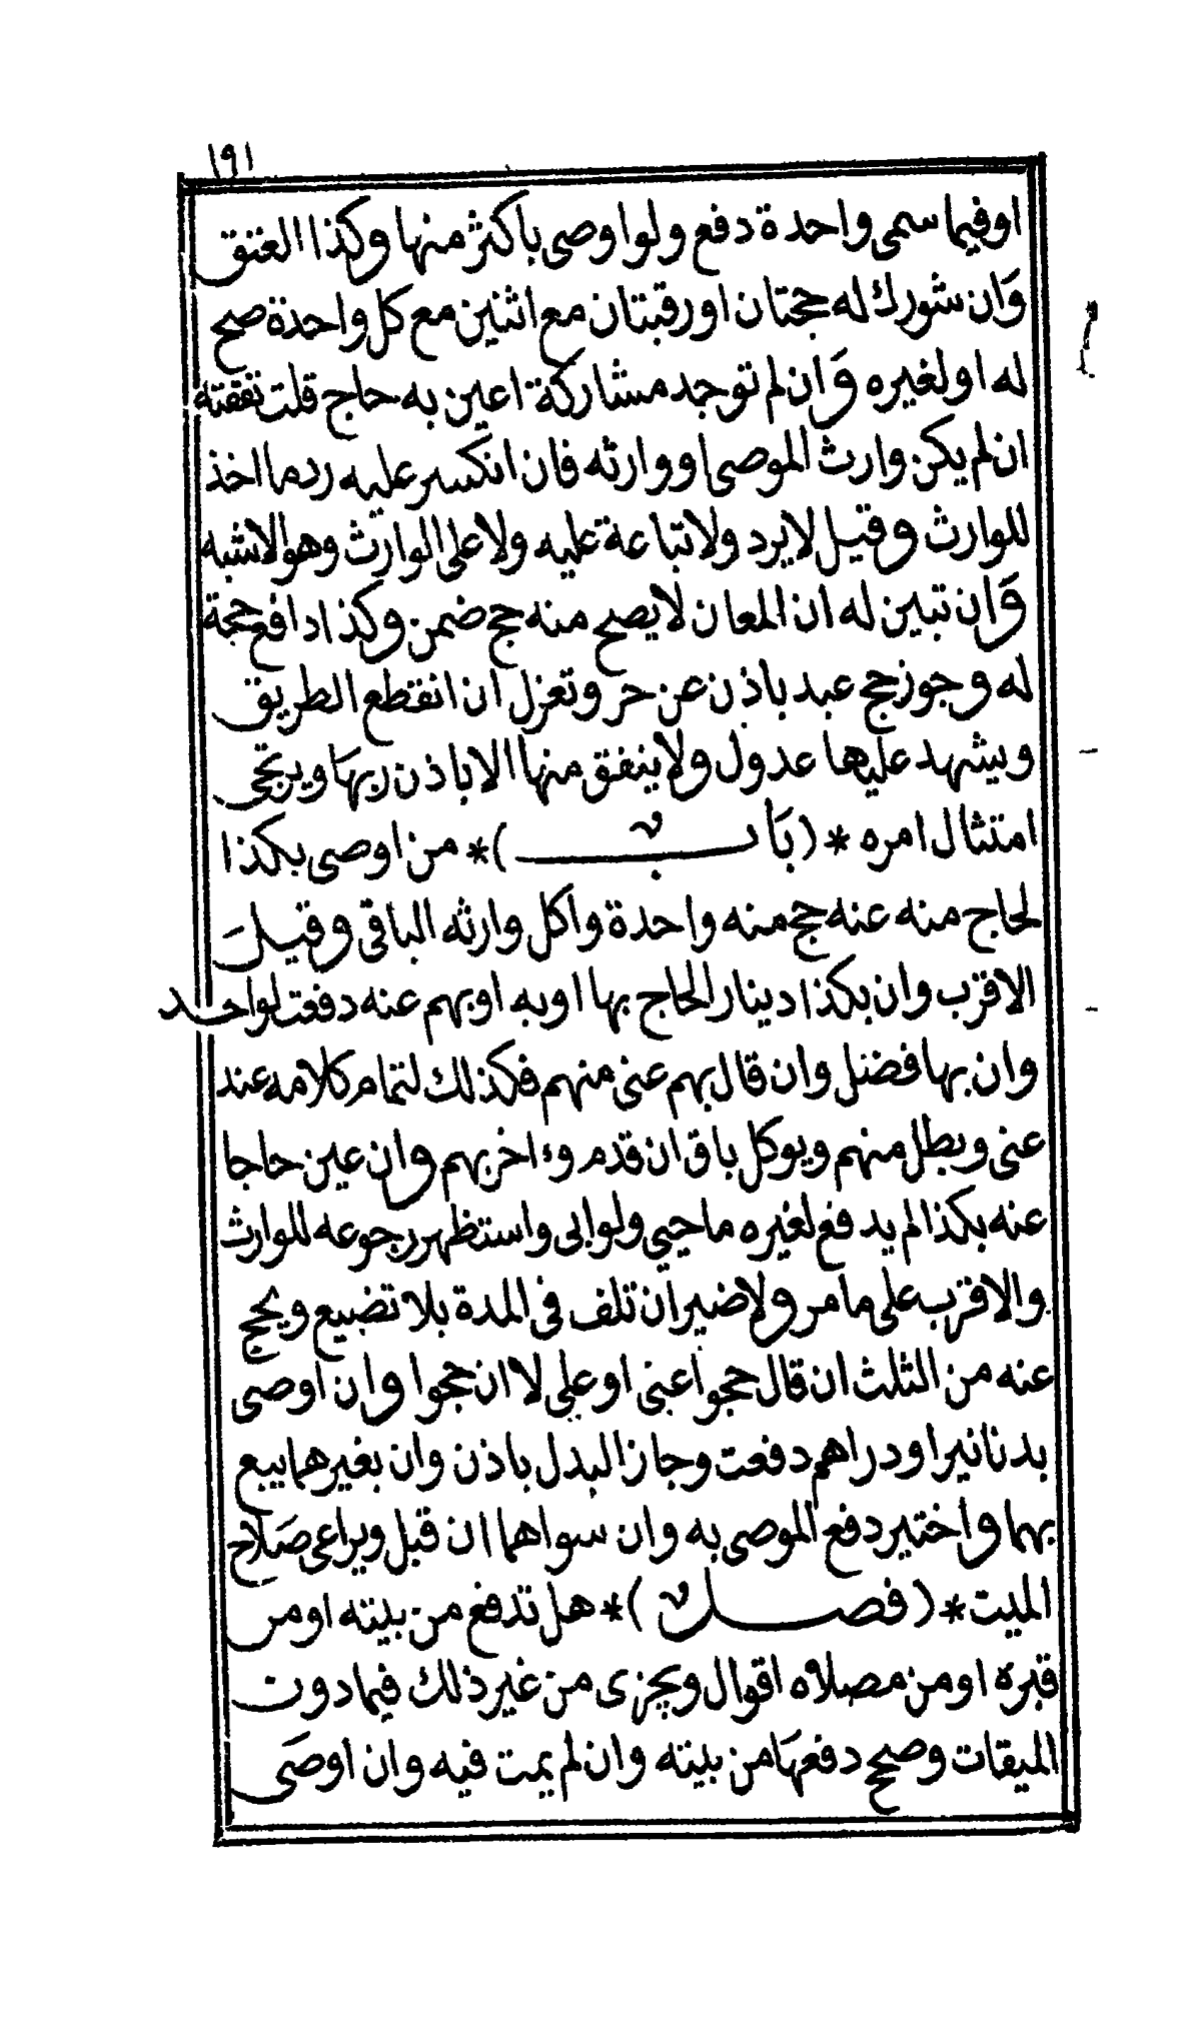 ١٩١
اوفيما سمى واحدة دفع ولواوصى باكثر منها وكذا العتق
وَان شورك له حجتان اورقبتان مع اثنين مع كل واحدة صح
له اولغيره وَان لم توجد مشاركة اعين به حاج قلت نفقته
ان لم يكن وارث الموصى اووارثه فان انكسر عليه ردما اخذ
للوارث وقيل لايرد ولاتباعة عليه ولاعلى الوارث وهوالاشبه
وَان تبين له ان المعان لايصح منه حج ضمن وكذا دافع حجة
له وجوز حج عبد باذن عن حر وتعزل ان انقطع الطريق
ويشهد عليها عدول ولاينفق منها الاباذن ربهَا ويرتجى
امتثال امره *(بَاب)* من اوصى بكذا
لحاج منه عنه حج منه واحدة واكل وارثه الباقى وقيل
الاقرب وان بكذا دينار الحاج بها اوبه اوبهم عنه دفعت لواحد
وان بها فضل وان قال بهم عنى منهم فكذلك لتمام كلامه عند
عنى وبطل منهم ويوكل باق ان قدم وءاخر بهم وان عين حاجا
عنه بكذا لم يدفع لغيره ماحيي ولوابى واستظهر رجوعه للوارث
والاقرب على مامر ولاضير ان تلف فى المدة بلا تضييع ويحج
عنه من الثلث ان قال حجوا عنى اوعلى لا ان حجوا وان اوصى
بدنانير اودراهم دفعت وجاز البدل باذن وان بغيرهما بيع
بهما واختير دفع الموصى به وان سواهما ان قبل ويراعى صَلاح
الميت *(فصل)* هل تدفع من بيته اومن
قبره اومن مصلاه اقوال ويجزى من غير ذلك فيما دون
الميقات وصح دفعهَا من بيته وان لم يمت فيه وان اوصَى